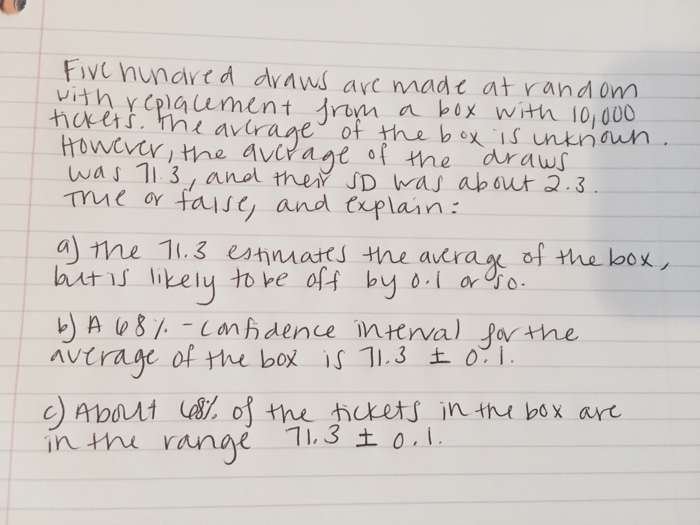 Five hundred draws are made at random
with replacement from a box with 10,000
tickets. The average of the box is unknown.
However, the average of the draws
was 71.3, and their SD was about 2.3.
True or false, and explain:
a) the 71.3 estimates the average of the box,
but is likely to be off by 0.1 or so.
b) A 68% - confidence interval for the
average of the box is 71.3 ± 0.1.
c) About 68% of the tickets in the box are
in the range 71.3 ± 0.1.